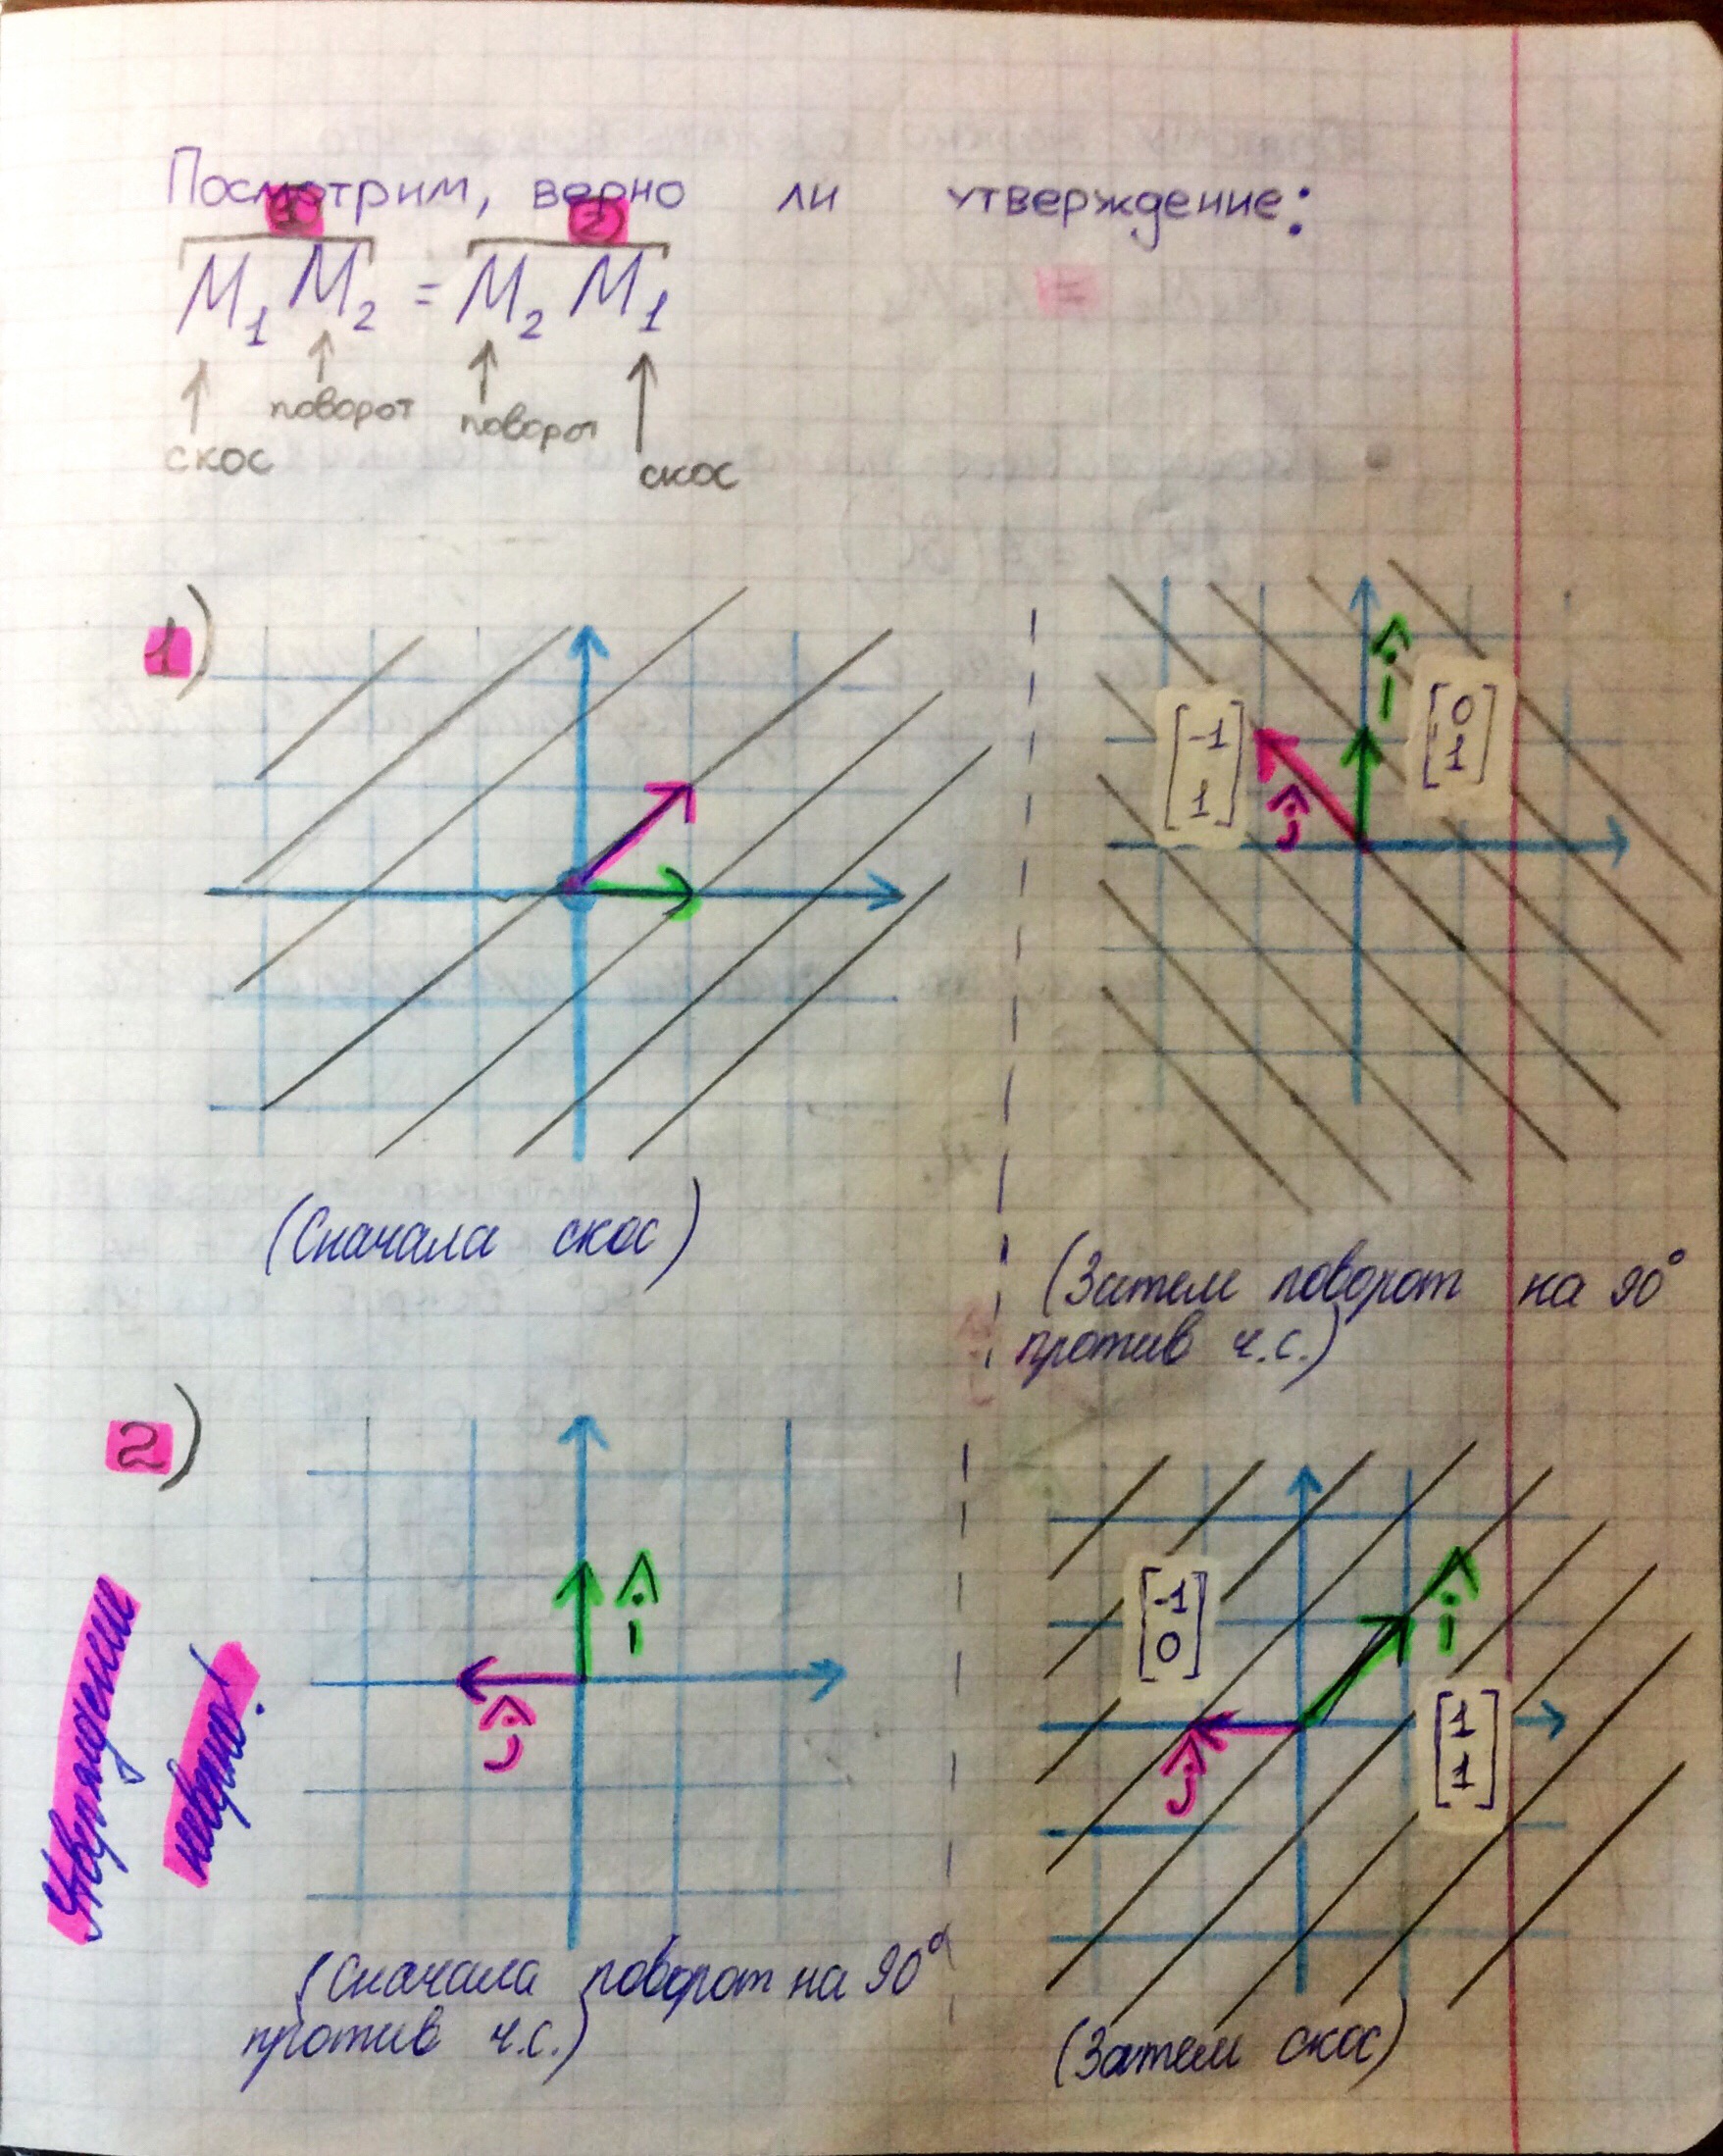 Посмотрим, верно ли утверждение:
1 2
M₁ M₂ = M₂ M₁
скос поворот поворот скос
1)
î
[-1 1]
[0 1]
ĵ
(Сначала скос)
(Затем поворот на 90°
против ч.с.)
2)
î
ĵ
[-1 0]
î
[1 1]
ĵ
Утверждение
неверно!
(Сначала поворот на 90°
против ч.с.)
(Затем скос)